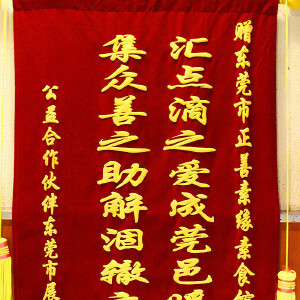 赠东莞市正善素缘素食馆
汇点滴之爱成莞邑暖
集众善之助解涸辙
公益合作伙伴东莞市展